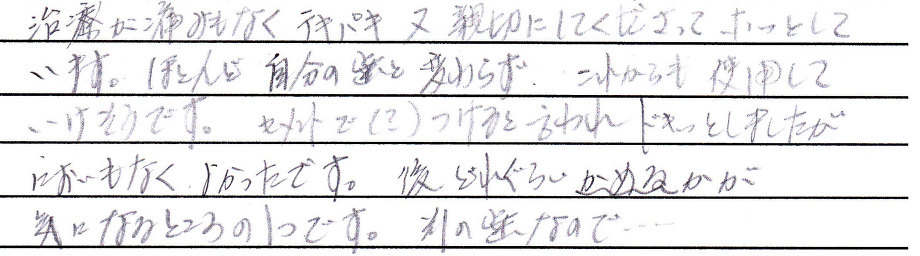 治療が痛みもなく テキパキ 又 親切にしてくださって ホッとして
います。ほとんど 自分の歯と 変わらず、これからも 使用して
いけそうです。 セメントで(?)つけると言われ ドキッとしましたが
においもなく よかったです。 後 どれぐらい かめるかが
気になるところの1つです。 前の歯なので……